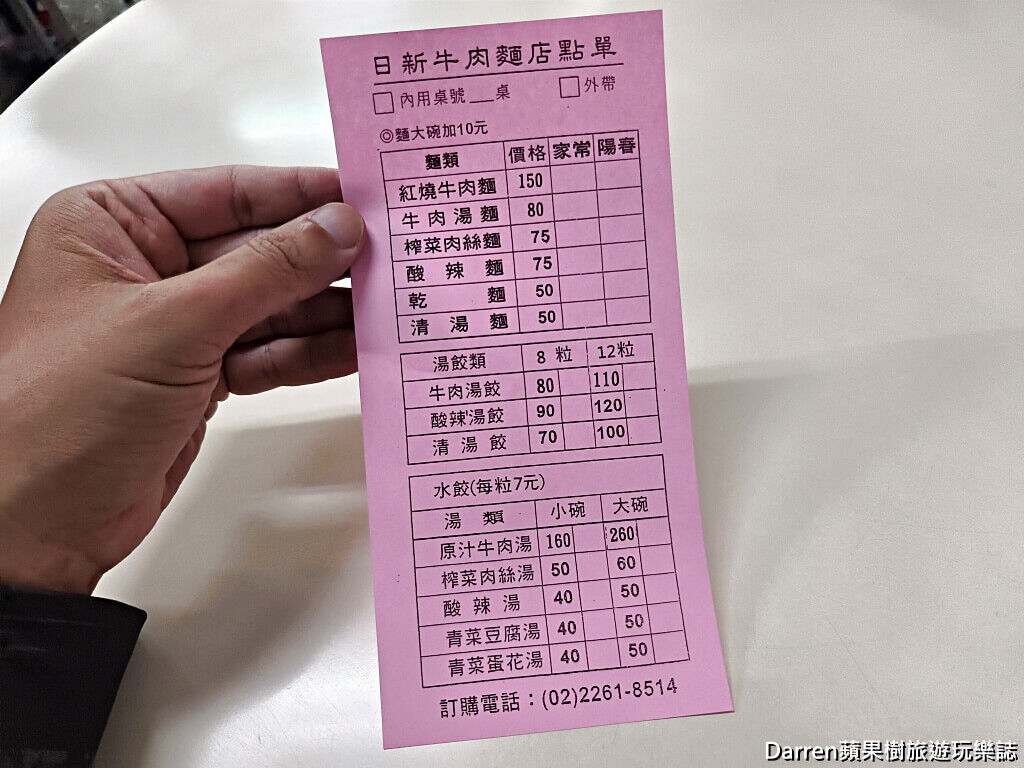 日新牛肉麵店點單
□內用桌號__桌 □外帶
◎麵大碗加10元
麵類 價格 家常 陽春
紅燒牛肉麵 150
牛肉湯麵 80
榨菜肉絲麵 75
酸辣麵 75
乾麵 50
清湯麵 50
湯餃類 8粒 12粒
牛肉湯餃 80 110
酸辣湯餃 90 120
清湯餃 70 100
水餃(每粒7元)
湯類 小碗 大碗
原汁牛肉湯 160 260
榨菜肉絲湯 50 60
酸辣湯 40 50
青菜豆腐湯 40 50
青菜蛋花湯 40 50
訂購電話：(02)2261-8514
Darren蘋果樹旅遊玩樂誌